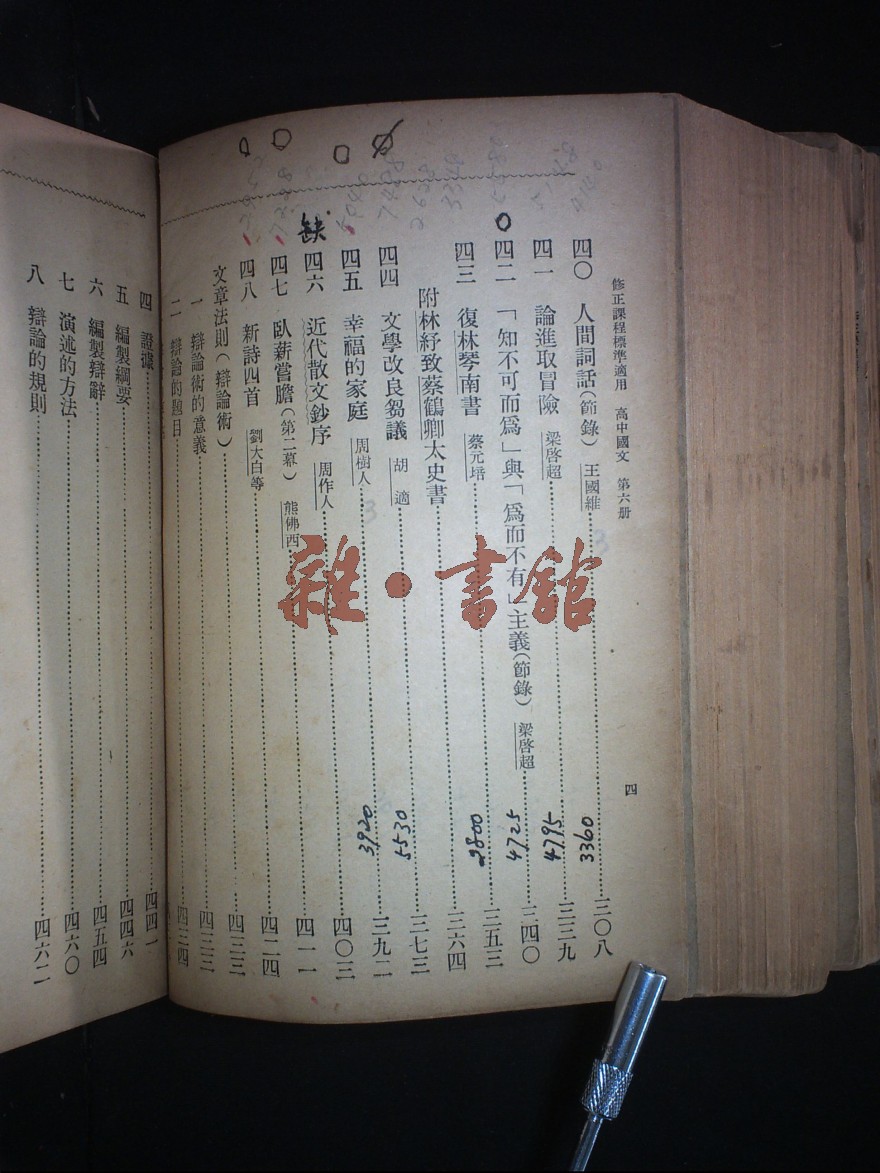 修正課程標準適用 高中國文 第六册
四
四〇 人間詞話(節錄) 王國維 三〇八
3360
四一 論進取冒險 梁啓超 三三九
4795
四二 「知不可而爲」與「爲而不有」主義(節錄) 梁啓超 三四〇
4725
四三 復林琴南書 蔡元培 三五三
2800
附林紓致蔡鶴卿太史書 三六四
四四 文學改良芻議 胡適 三七三
5530
四五 幸福的家庭 周樹人 三九二
3920
四六 近代散文鈔序 周作人 四〇三
缺
四七 臥薪嘗膽(第二幕) 熊佛西 四一一
四八 新詩四首 劉大白等 四二四
文章法則(辯論術) 四三三
一 辯論術的意義 四三三
二 辯論的題目 四三四
四 證據 四四一
五 編製綱要 四四六
六 編製辯辭 四五四
七 演述的方法 四六〇
八 辯論的規則 四六二
雜·書館